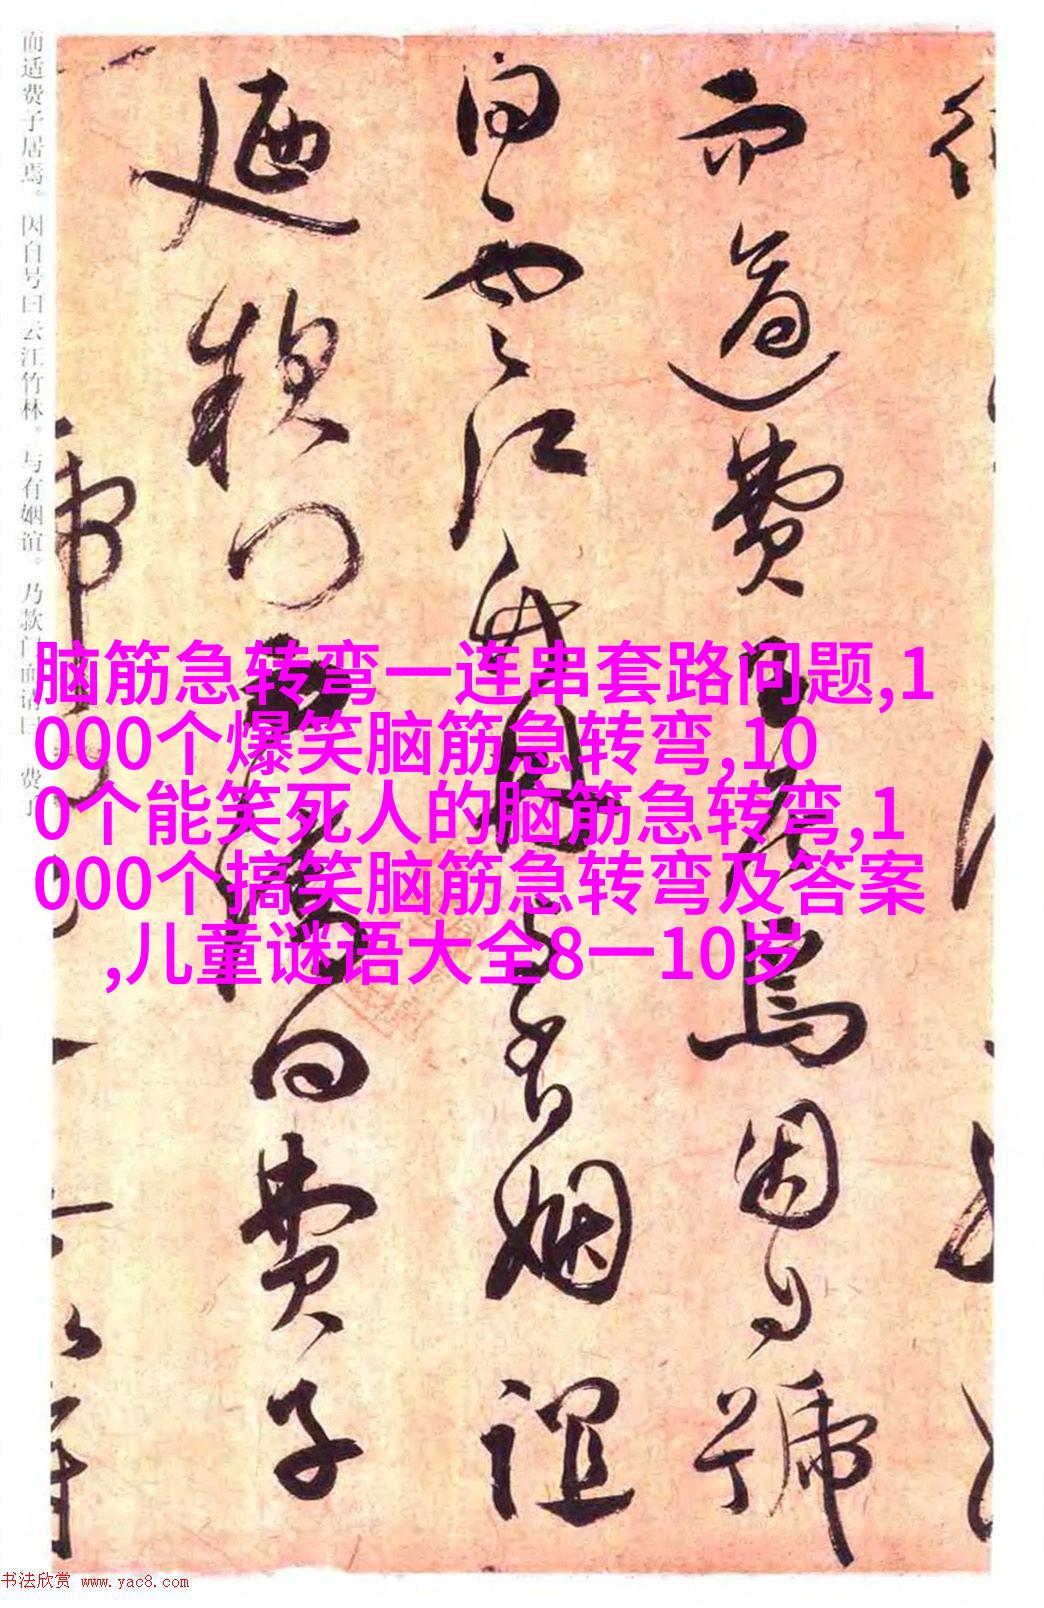 而適費子居焉因自號
曰雲江竹與有姻誼
迺款門曰費子
而适费子居焉。因自号曰云江竹林。与有姻谊。乃款门而请曰 费子
脑筋急转弯一连串套路问题,1
000个爆笑脑筋急转弯,10
0个能笑死人的脑筋急转弯,1
000个搞笑脑筋急转弯及答案
,儿童谜语大全8一10岁
书法欣赏 www.yac8.com